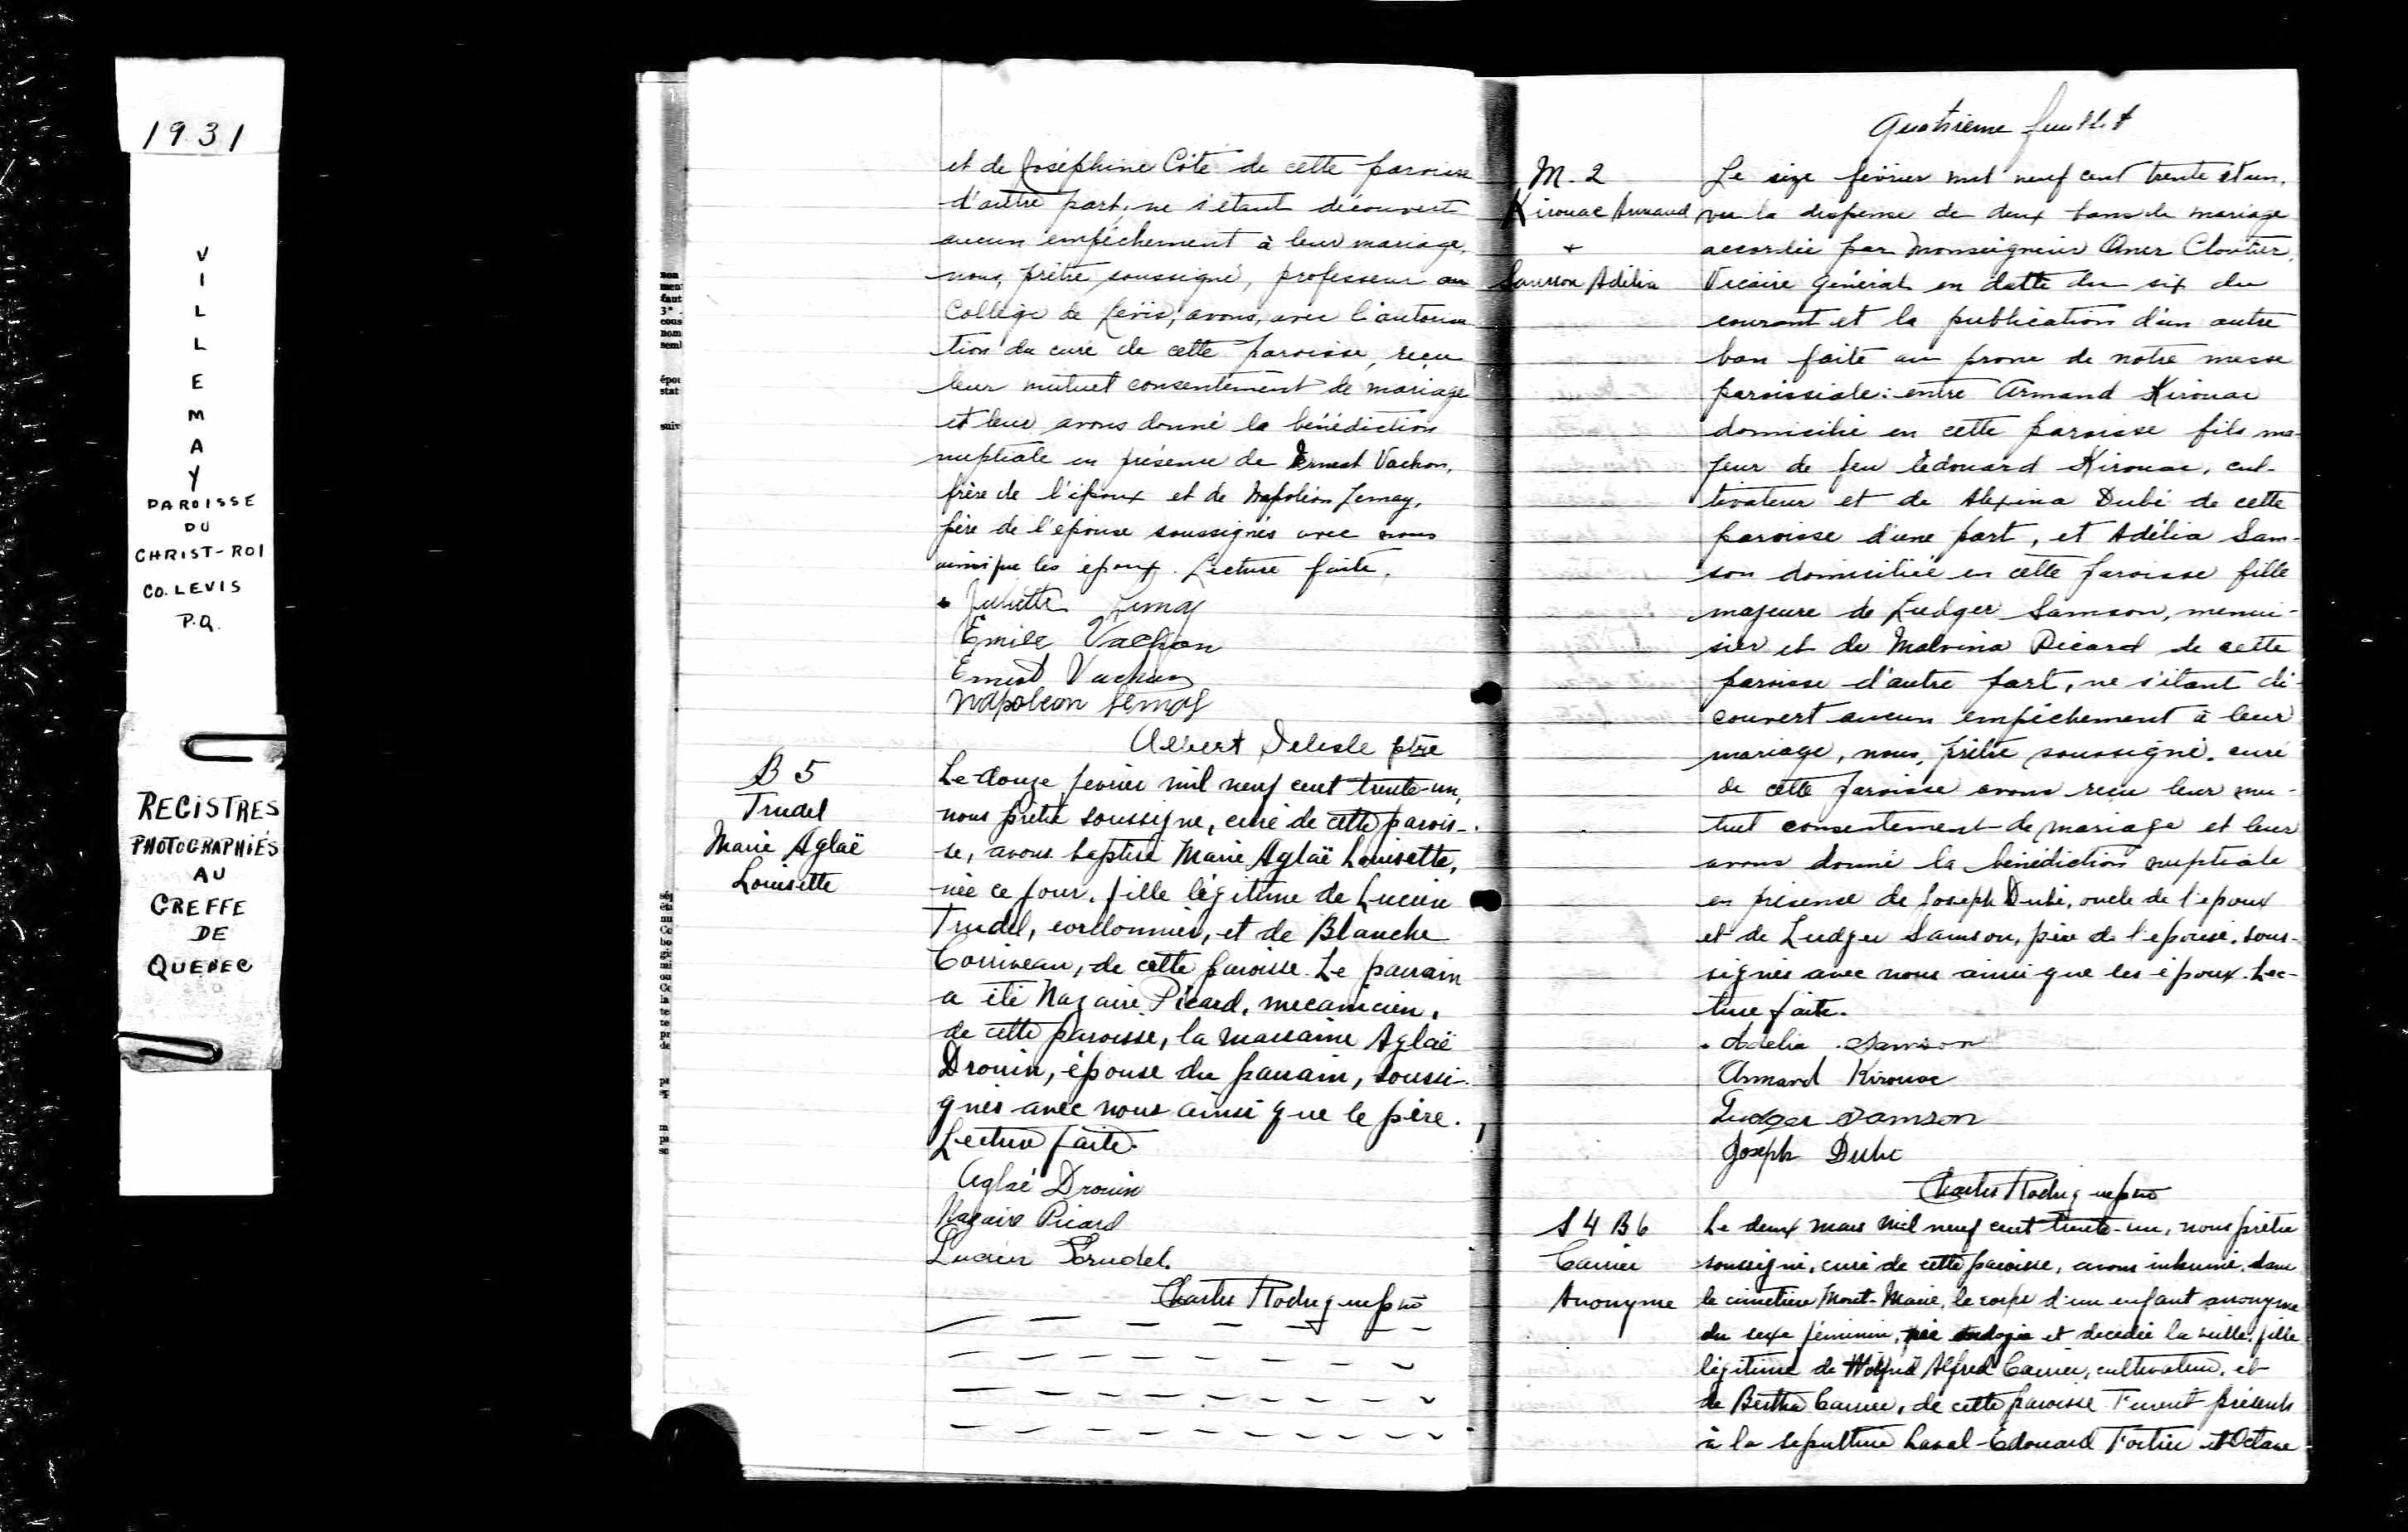 1931
V
I
L
L
E
M
A
Y
PAROISSE
DU
CHRIST-ROI
CO. LEVIS
P.Q.
REGISTRES
PHOTOGRAPHIÉS
AU
GREFFE
DE
QUEBEC
et de Joséphine Côté de cette paroisse
d'autre part, ne s'étant découvert
aucun empêchement à leur mariage,
nous, prêtre soussigné, professeur au
Collège de Lévis, avons, avec l'autorisa
tion du curé de cette paroisse, reçu
leur mutuel consentement de mariage
et leur avons donné la bénédiction
nuptiale en présence de Ernest Vachon,
frère de l'époux et de Napoléon Lemay,
père de l'épouse soussignés avec nous
ainsi que les époux. Lecture faite.
Juliette Lemay
Emile Vachon
Ernest Vachon
Napoleon Lemay
Albert Delisle ptre
B 5
Trudel
Marie Aglaë
Louisette
Le douze février mil neuf cent trente-un,
nous prêtre soussigné, curé de cette parois-
se, avons baptisé Marie Aglaë Louisette,
née ce jour, fille légitime de Lucien
Trudel, cordonnier, et de Blanche
Corriveau, de cette paroisse. Le parrain
a été Nazaire Picard, mécanicien,
de cette paroisse, la marraine Aglaë
Drouin, épouse du parrain, soussi-
gnés avec nous ainsi que le père.
Lecture faite.
Aglaé Drouin
Nazaire Picard
Lucien Trudel.
Charles Rodrigue ptre
Quatrième feuillet
M. 2
Kirouac Armand
+
Samson Adélia
Le seize février mil neuf cent trente et un,
vu la dispense de deux bans de mariage
accordée par Monseigneur Omer Cloutier,
Vicaire général en datte du six du
courant et la publication d'un autre
ban faite au prone de notre messe
paroissiale: entre Armand Kirouac
domicilié en cette paroisse fils ma-
jeur de feu Édouard Kirouac, cul-
tivateur et de Alexina Dubé de cette
paroisse d'une part, et Adélia Sam-
son domiciliée en cette paroisse fille
majeure de Ludger Samson, menui-
sier et de Malvina Picard de cette
paroisse d'autre part, ne s'étant dé-
couvert aucun empêchement à leur
mariage, nous, prêtre soussigné, curé
de cette paroisse avons reçu leur mu-
tuel consentement de mariage et leur
avons donné la bénédiction nuptiale
en présence de Joseph Dubé, oncle de l'époux
et de Ludger Samson, père de l'épouse, sous-
signés avec nous ainsi que les époux. Lec-
ture faite.
Adélia Samson
Armand Kirouac
Ludger Samson
Joseph Dubé
Charles Rodrigue ptre
S 4 B 6
Carrier
Anonyme
Le deux mars mil neuf cent trente-un, nous prêtre
soussigné, curé de cette paroisse, avons inhumé, dans
le cimetière Mont-Marie, le corps d'un enfant anonyme
du sexe féminin, née ondoyée et décédée la veille, fille
légitime de Alfred Carrier, cultivateur, et
de Bertha Carrier, de cette paroisse. Furent présents
à la sépulture Laval-Édouard Fortier et Octave